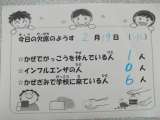 今日の欠席のようす 2月19日(
☆かぜでがっこうを休んでいる人 1人
☆インフルエンザの人 0人
☆かぜぎみで学校に来ている人 6人